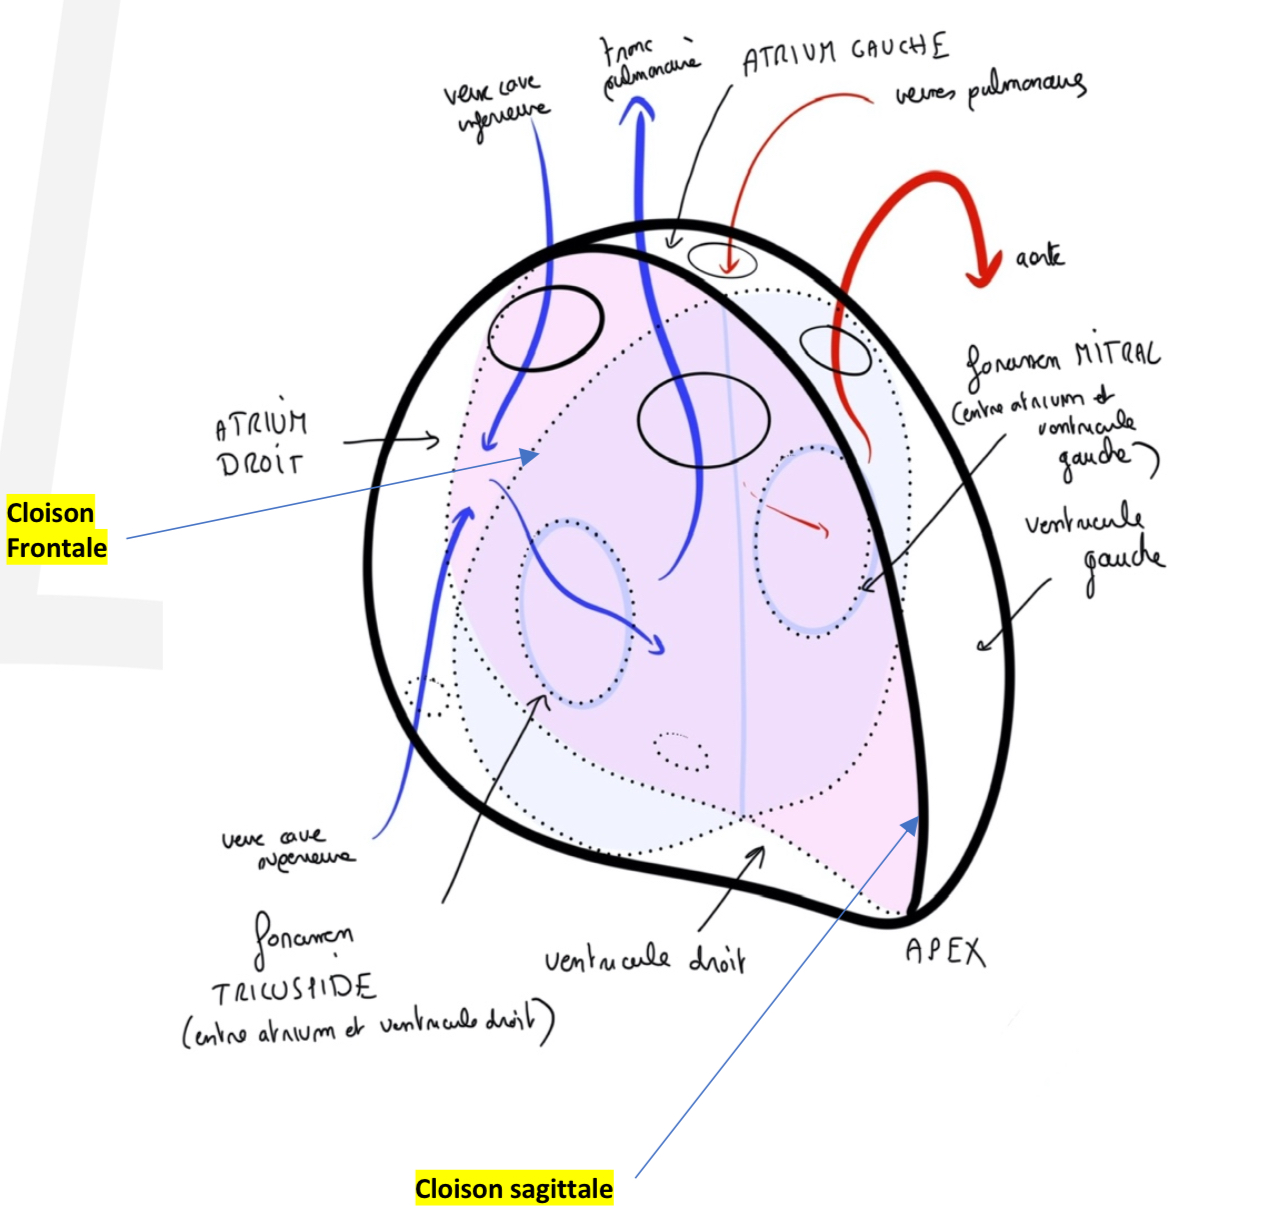 tronc
pulmonaire
ATRIUM GAUCHE
veines pulmonaires
veine cave
inferieure
aorte
foramen MITRAL
(entre atrium et
ventricule
gauche)
ATRIUM
DROIT
Cloison
Frontale
ventricule
gauche
veine cave
superieure
foramen
TRICUSPIDE
(entre atrium et ventricule droit)
ventricule droit
APEX
Cloison sagittale